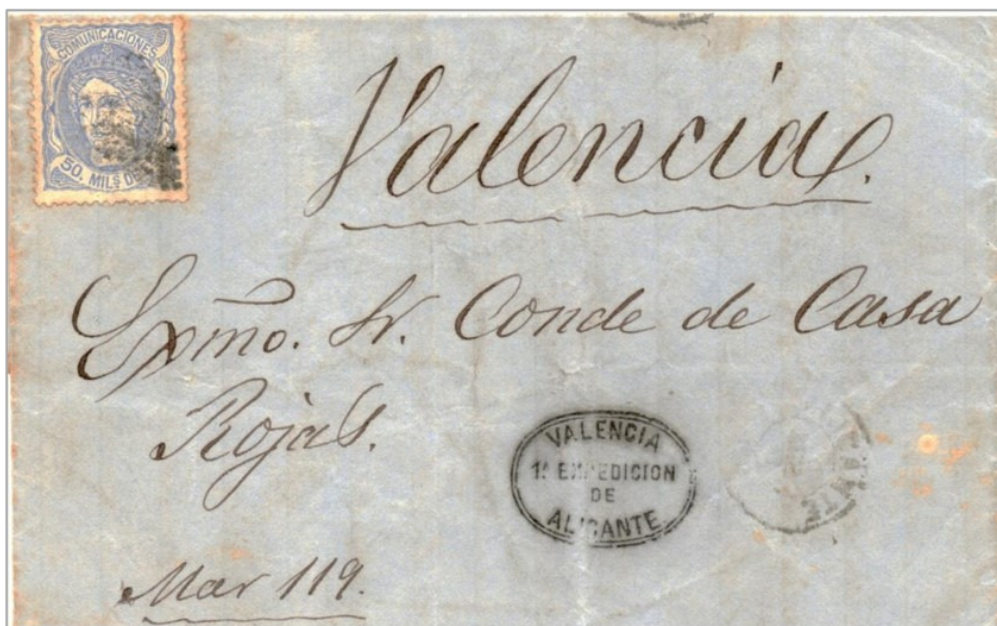 COMUNICACIONES
50. MILS DE
Valencia.
Exmo. Sr. Conde de Casa
Rojas.
VALENCIA
1ª EXPEDICION
DE
ALICANTE
Mar 119.